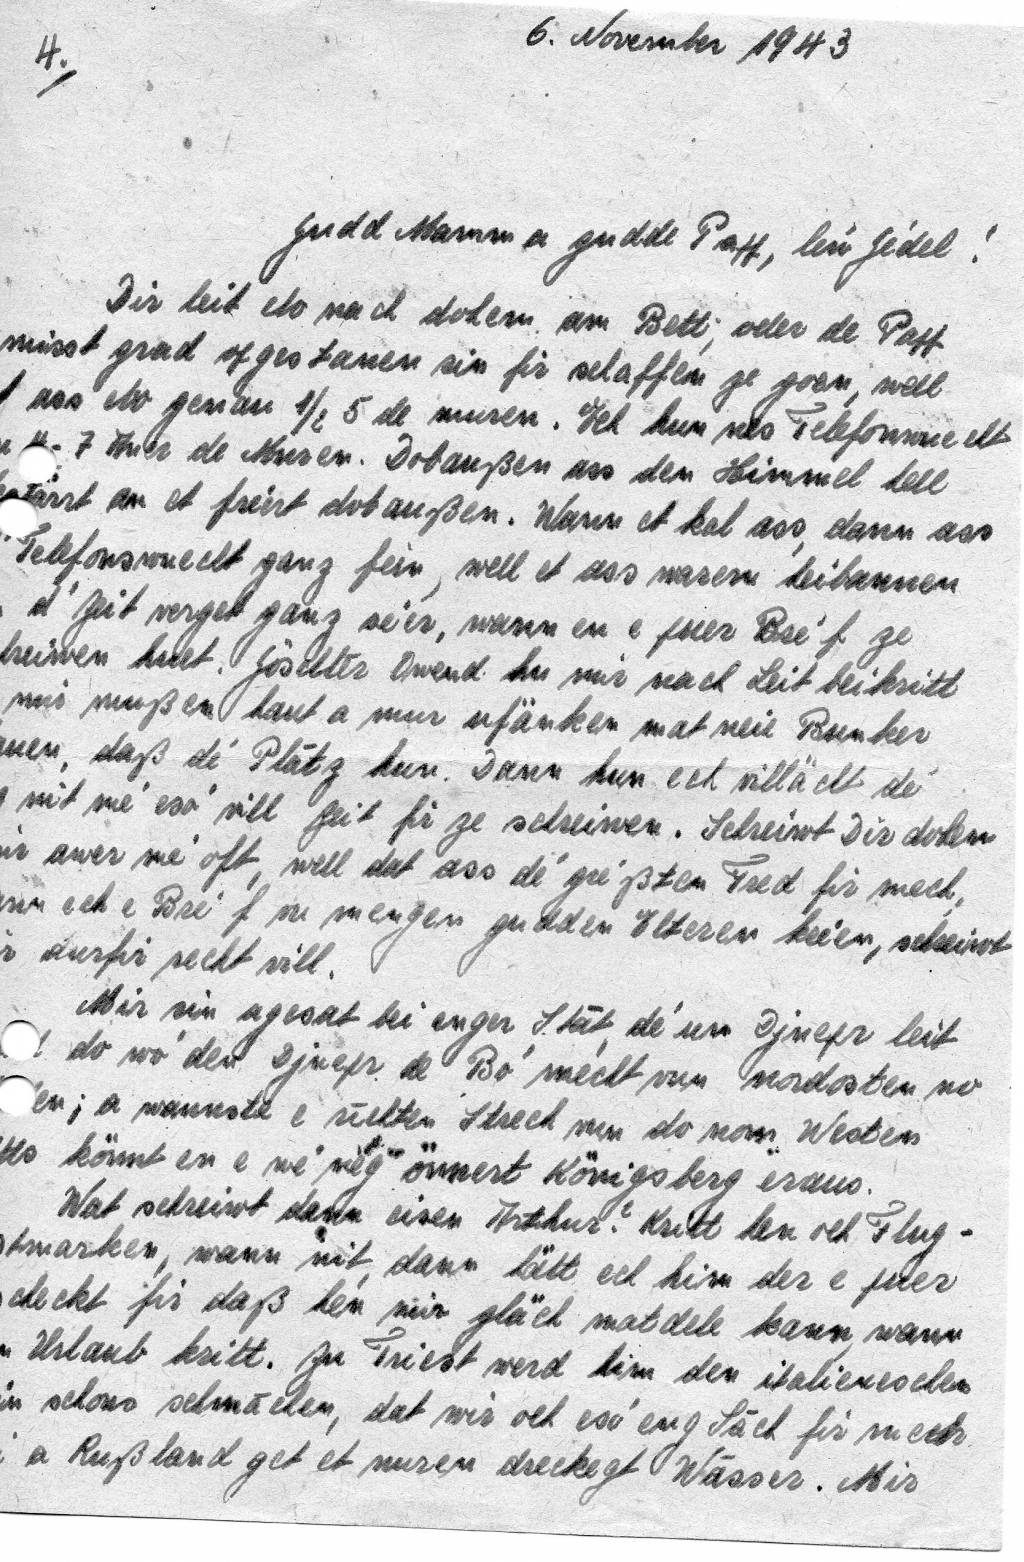 4.
6. November 1943
Gudd Mamm a gudde Papp, léw Gédel!
Dir leit elo nach dohem am Bett, oder de Papp
misst grad opgestanen sin fir schaffen ze goen, well
ass elo genau 1/2 5 de muren. Ech hun nës Telefonwuecht
4-7 Auer de Muren. Dobaußen ass den Himmel hell
an et fréiert dobaußen. Wann et kal ass, dann ass
Telefonswuecht ganz fein, well et ass warem heibannen
d'Zeit verget ganz séier, wann en e puer Bréf ze
huet. Göschter Owend hu mir nach Leit beikritt
mir mußen haut a mur ufänken mat neie Bunker
, daß dé Plätz hun. Dann hun ech villächt dé
nit mé esó vill Zeit fir ze schreiwen. Schreiwt Dir dohem
awer mé oft, well dat ass dé gréßten Fred fir mech,
ech e Bréf vu mengen gudden Elteren kréien, schreiwt
durfir recht vill.
Mir sin agesat bei enger Stāt, dé um Djnepr leit
do wó den Djnepr de Bó mécht vun nordosten no
en; a wannste e riichten Strech vun do nom Westen
könnt en e wé neg önnert Königsberg eraus.
Wat schreiwt dann eisen Arthur? Kritt hen och Flug-
, wann nit, dann hätt ech him der e puer
fir daß hén mir gläch matdele kann, wann
Urlaub kritt. Zu Triest werd him den italieneschen
schons schmāchen, dat wir och esó eng Sāch fir mech
a Rußland get et nuren dreckegt Wāsser. Mir